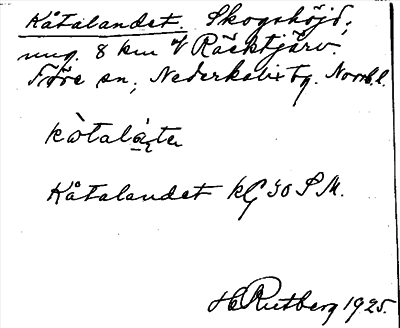 Kåtalandet. Skogshöjd;
ung. 8 km V Räcktjärv.
Töre sn; Nederkalix tg. Norrb. l.
kòtalátə
Kåtalandet kG 30 S M.
H Rutberg 1925.